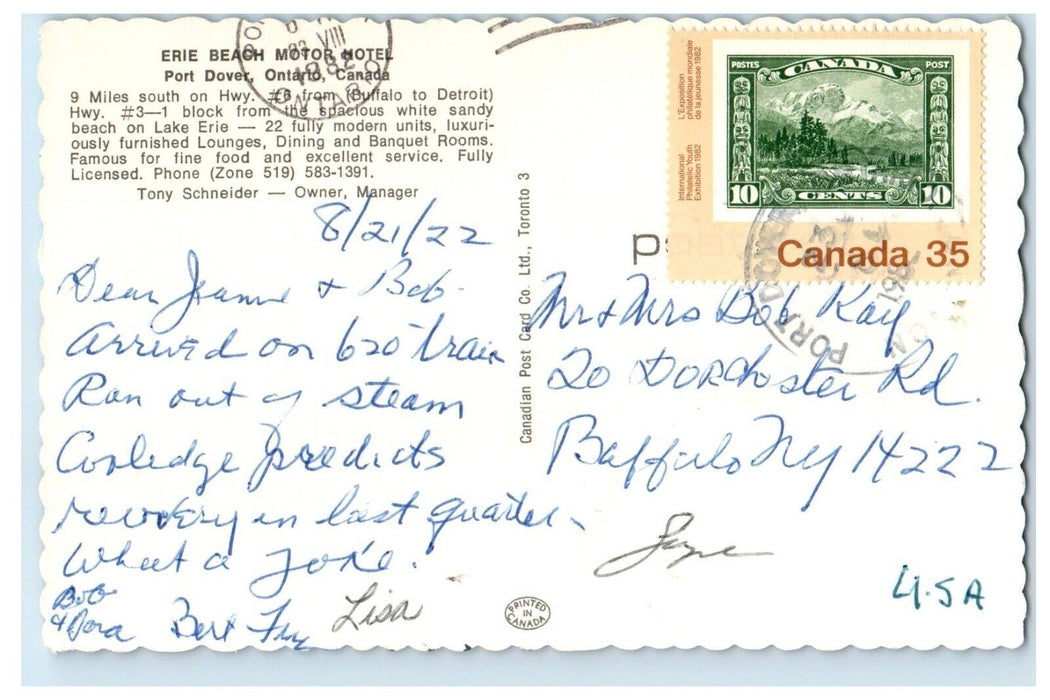 ERIE BEACH MOTOR HOTEL
Port Dover, Ontario, Canada
9 Miles south on Hwy. #6 from (Buffalo to Detroit)
Hwy. #3—1 block from the spacious white sandy
beach on Lake Erie — 22 fully modern units, luxuri-
ously furnished Lounges, Dining and Banquet Rooms.
Famous for fine food and excellent service. Fully
Licensed. Phone (Zone 519) 583-1391.
Tony Schneider — Owner, Manager
VIII
1982
ONTARIO
8/21/22
Dear Jeanne & Bob-
Arrived on 620 train
Ran out of steam
Cooledge predicts
recovery in last quarter.
What a joke.
Bob
& Dora
Bert Fry
Lisa
Canadian Post Card Co. Ltd., Toronto 3
L'Exposition
philatélique mondiale
de la jeunesse 1982
International
Philatelic Youth
Exhibition 1982
POSTES
CANADA
POST
10
CENTS
10
Canada 35
PORT DOVER
Mr & Mrs Bob Kay
20 Dorchester Rd.
Buffalo Ny 14222
U.S.A
PRINTED
IN
CANADA